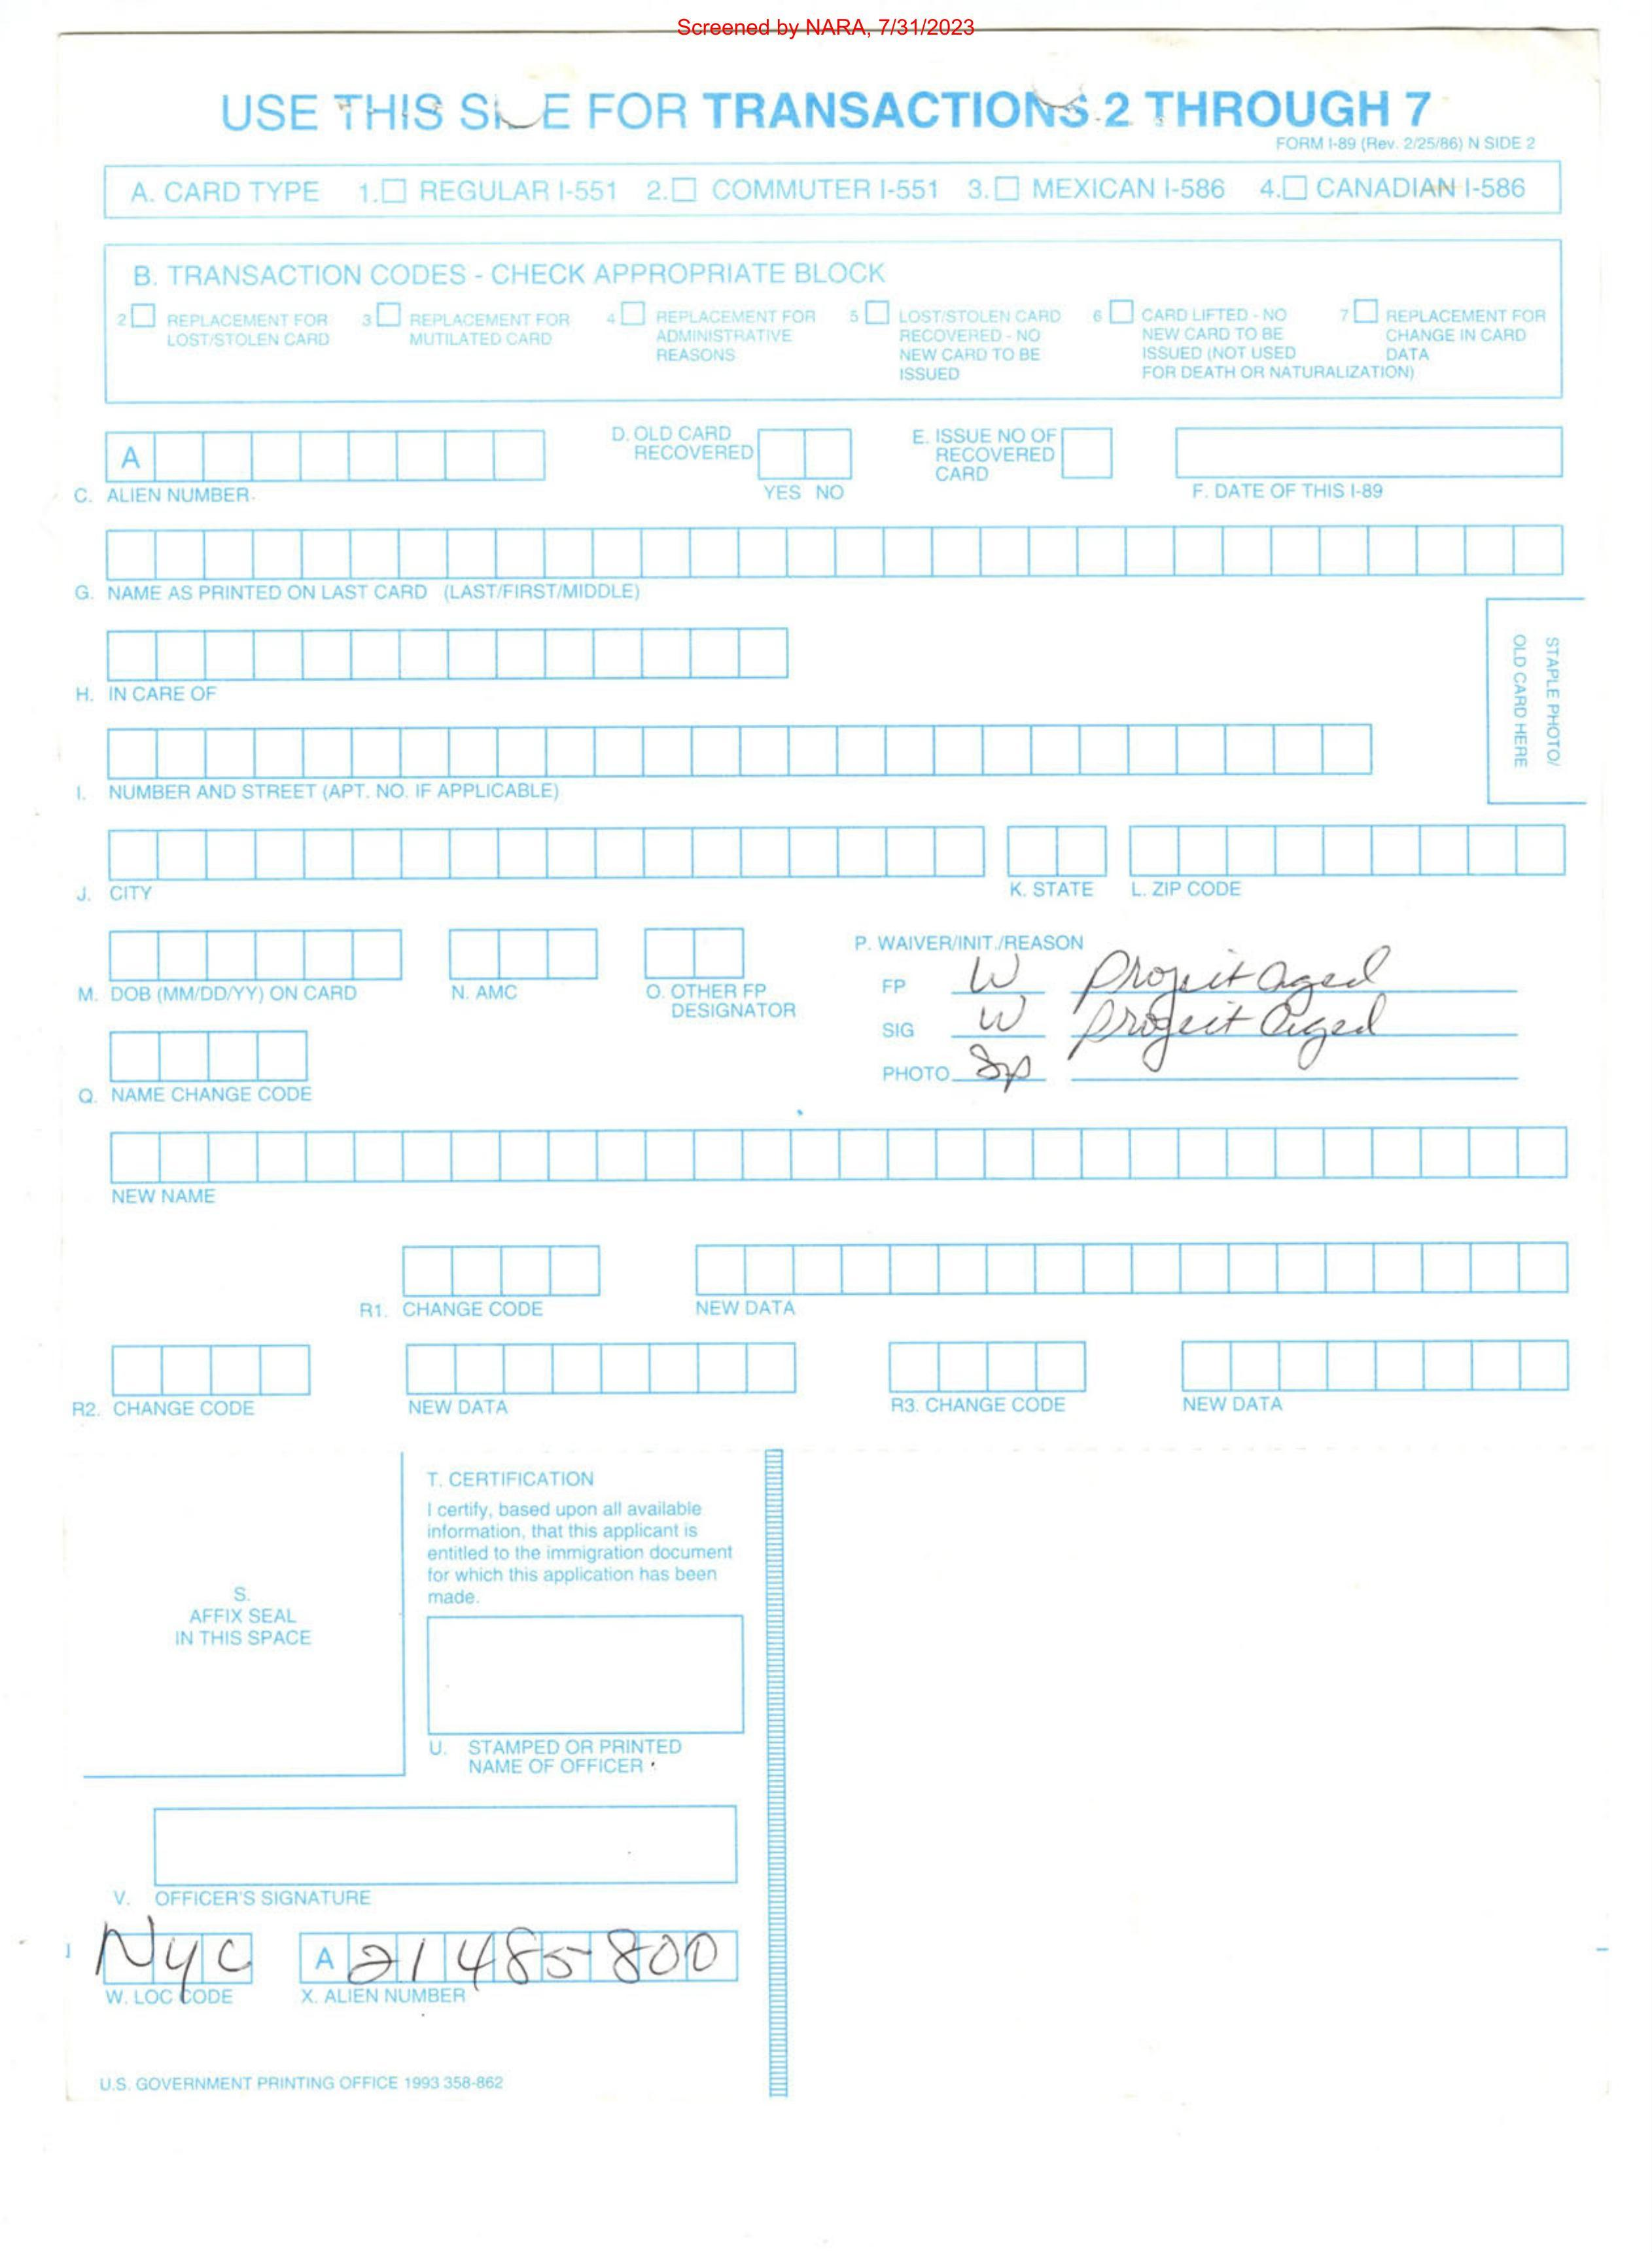 Screened by NARA, 7/31/2023
USE THIS SIDE FOR TRANSACTIONS 2 THROUGH 7
FORM I-89 (Rev. 2/25/86) N SIDE 2
A. CARD TYPE 1. REGULAR I-551 2. COMMUTER I-551 3. MEXICAN I-586 4. CANADIAN I-586
B. TRANSACTION CODES - CHECK APPROPRIATE BLOCK
2 REPLACEMENT FOR LOST/STOLEN CARD
3 REPLACEMENT FOR MUTILATED CARD
4 REPLACEMENT FOR ADMINISTRATIVE REASONS
5 LOST/STOLEN CARD RECOVERED - NO NEW CARD TO BE ISSUED
6 CARD LIFTED - NO NEW CARD TO BE ISSUED (NOT USED FOR DEATH OR NATURALIZATION)
7 REPLACEMENT FOR CHANGE IN CARD DATA
A
C. ALIEN NUMBER.
D. OLD CARD RECOVERED
YES NO
E. ISSUE NO OF RECOVERED CARD
F. DATE OF THIS I-89
G. NAME AS PRINTED ON LAST CARD (LAST/FIRST/MIDDLE)
STAPLE PHOTO/
OLD CARD HERE
H. IN CARE OF
I. NUMBER AND STREET (APT. NO. IF APPLICABLE)
J. CITY
K. STATE
L. ZIP CODE
M. DOB (MM/DD/YY) ON CARD
N. AMC
O. OTHER FP DESIGNATOR
P. WAIVER/INIT./REASON
FP W Projeit aged
SIG W Projeit aged
PHOTO
Q. NAME CHANGE CODE
NEW NAME
R1. CHANGE CODE
NEW DATA
R2. CHANGE CODE
NEW DATA
R3. CHANGE CODE
NEW DATA
S.
AFFIX SEAL
IN THIS SPACE
T. CERTIFICATION
I certify, based upon all available
information, that this applicant is
entitled to the immigration document
for which this application has been
made.
U. STAMPED OR PRINTED
NAME OF OFFICER
V. OFFICER'S SIGNATURE
NYC
W. LOC CODE
A 21485800
X. ALIEN NUMBER
U.S. GOVERNMENT PRINTING OFFICE 1993 358-862